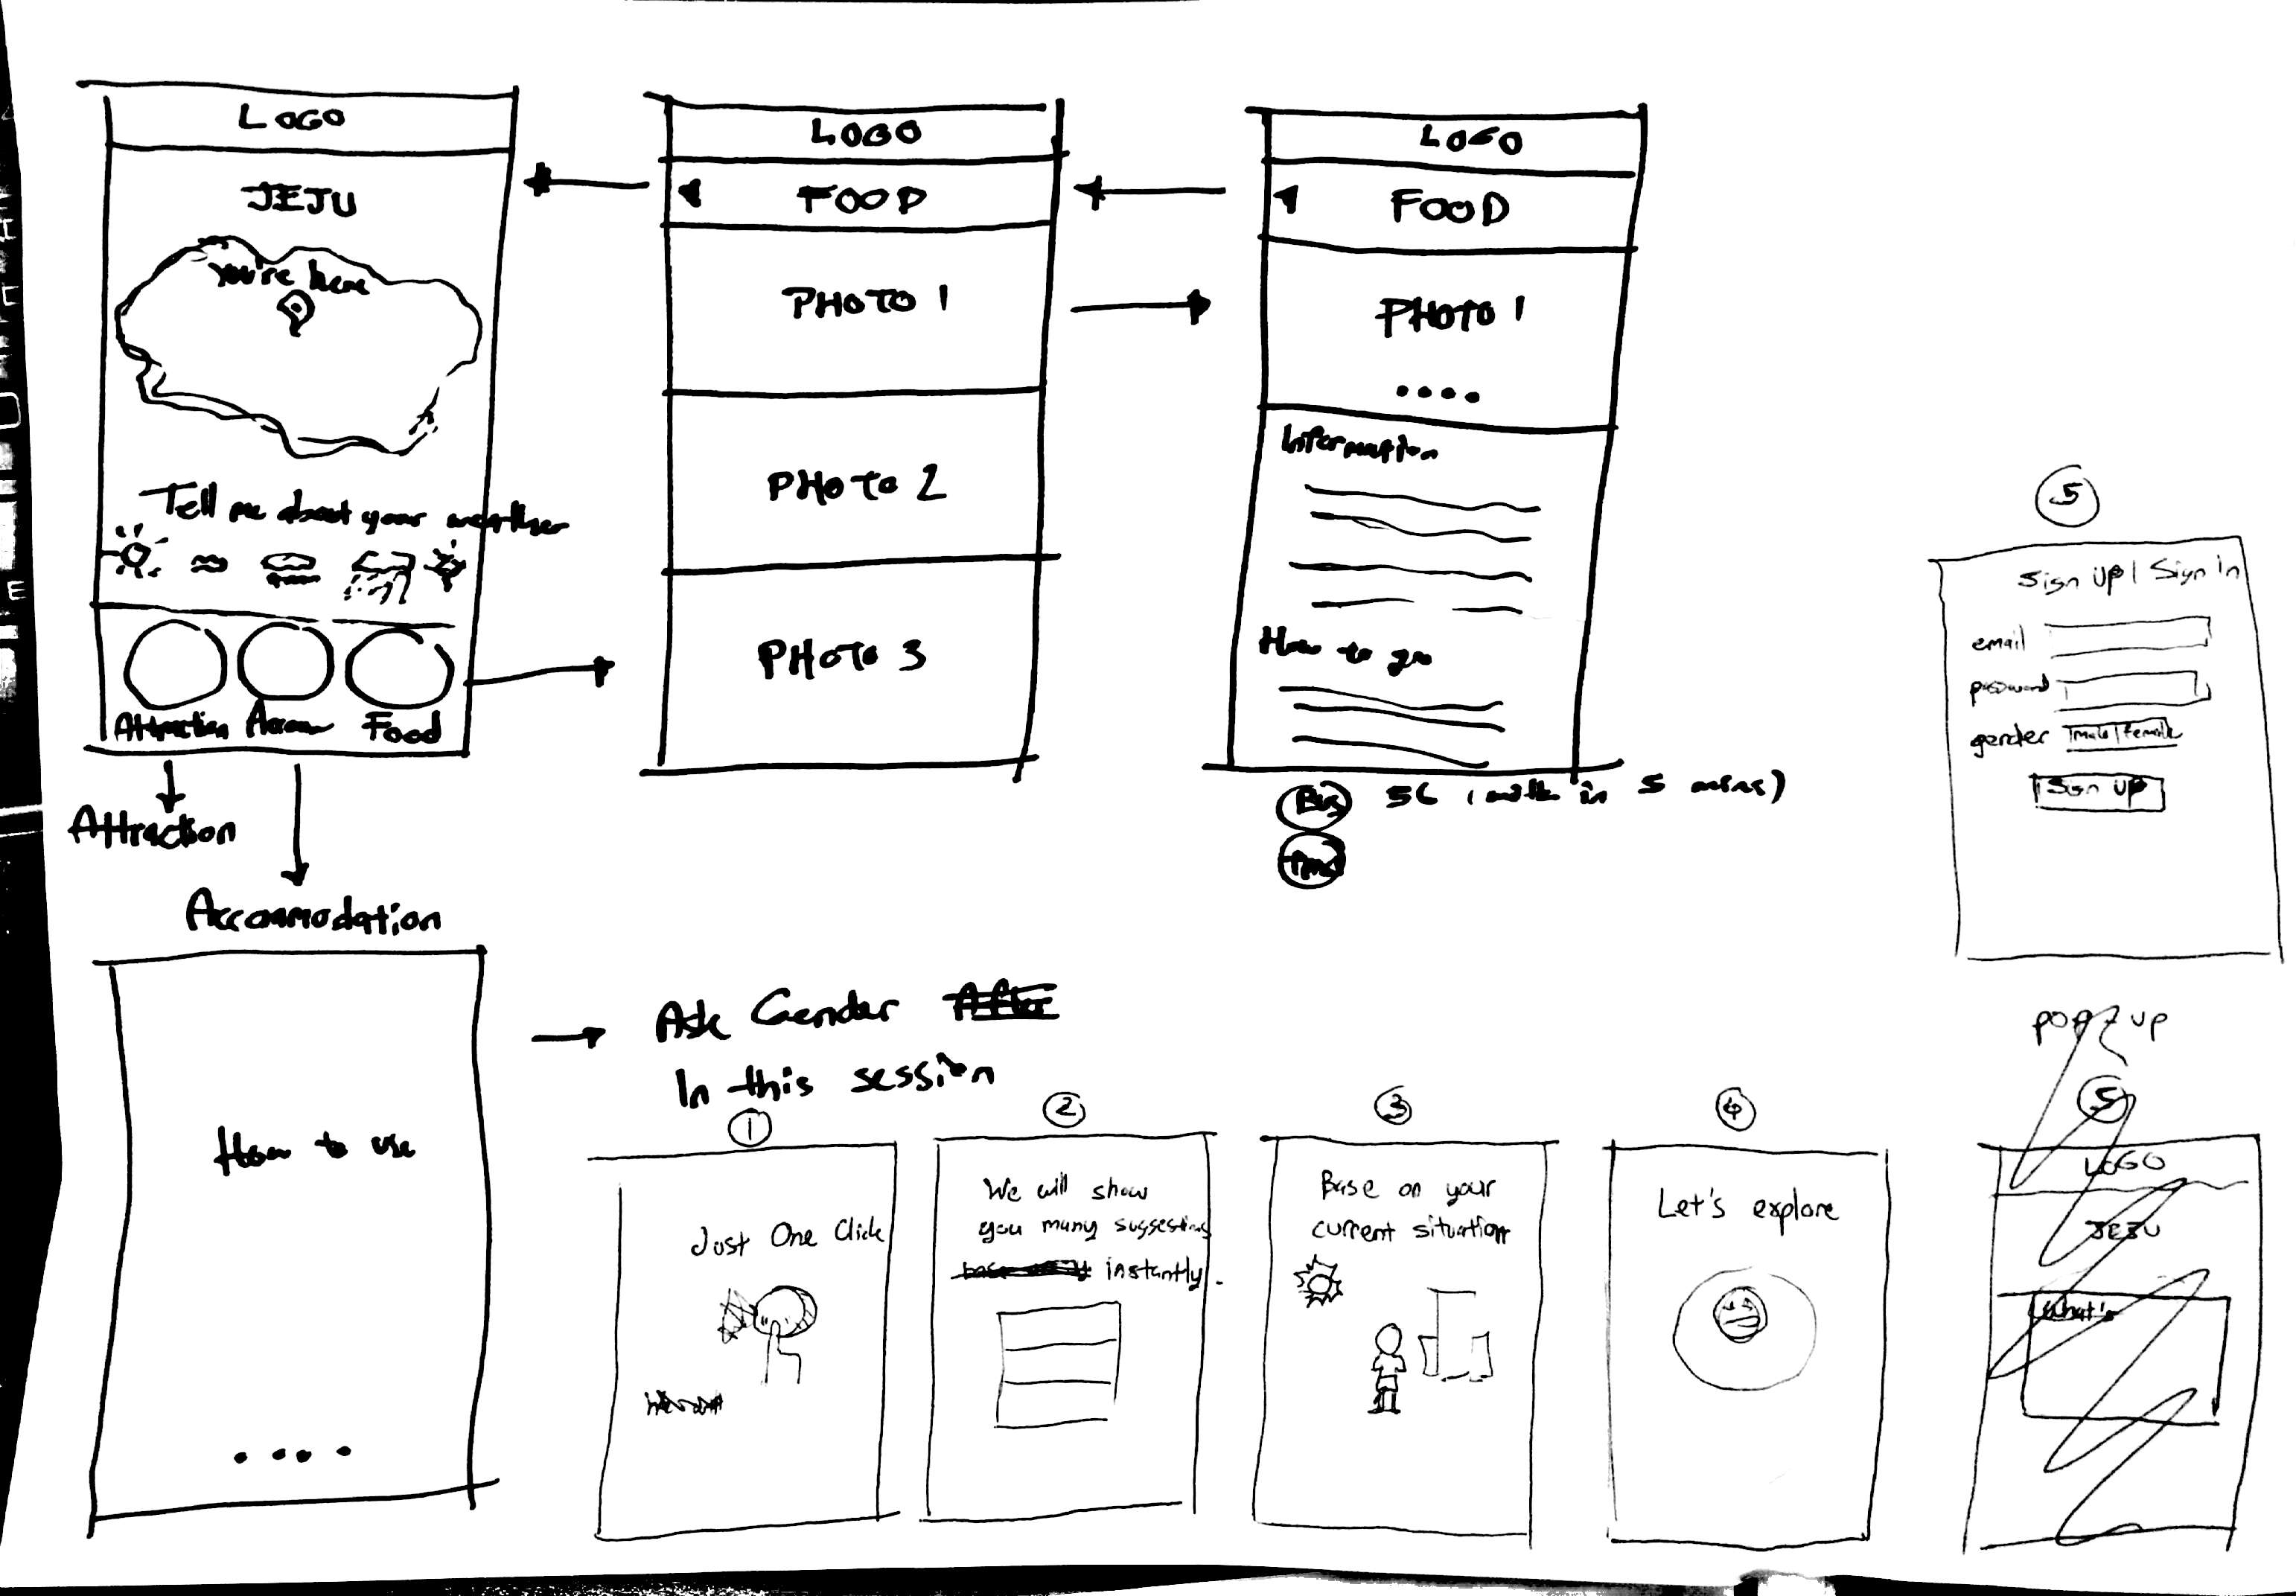 LOGO
JEJU
You're here
Tell me about your weather
Attraction
Food
Attraction
Accommodation
LOGO
FOOD
PHOTO 1
PHOTO 2
PHOTO 3
LOGO
FOOD
PHOTO 1
Information
How to go
Bus
56 (with in 5 mins)
5
Sign up | Sign in
email
password
gender male | female
Sign up
How to use
Ask Gender
In this session
1
Just One Click
2
We will show
you many suggestions
instantly.
3
Base on your
current situation
4
Let's explore
pop up
5
LOGO
JEJU
What's